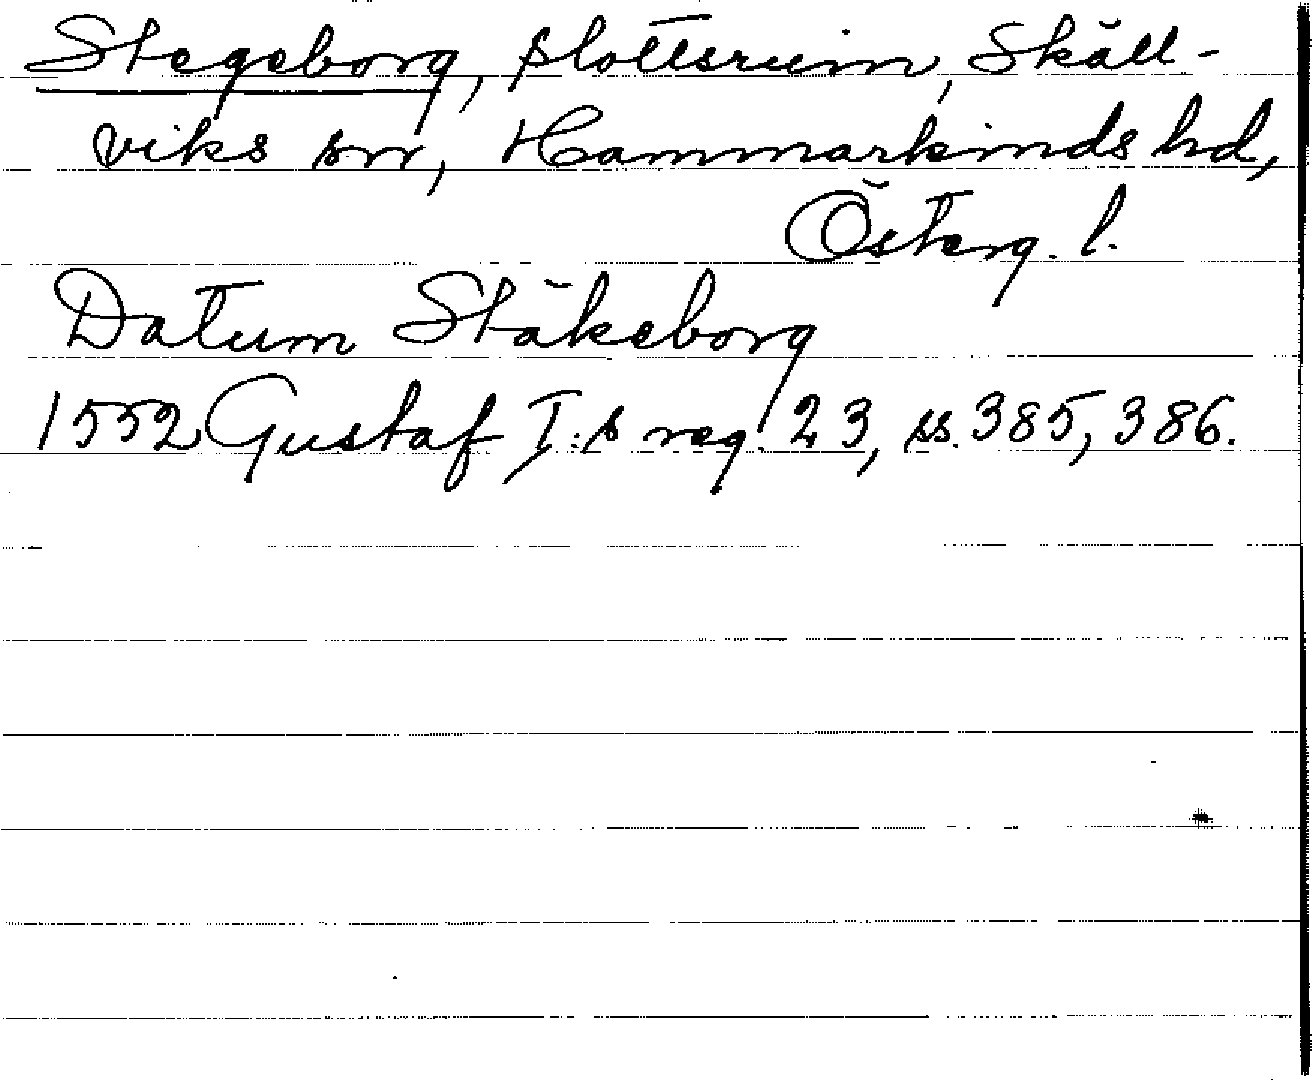 Stegeborg, slottsruin, Skäll-
viks sn, Hammarkinds hd,
Österg. l.
Datum Stäkeborg
1552 Gustaf I:s reg. 23, ss. 385, 386.